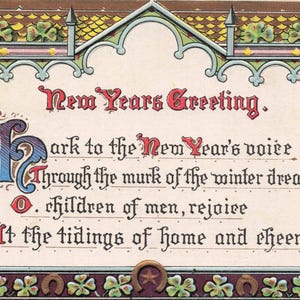 New Years Greeting.
Hark to the New Year's voice
Through the murk of the winter drea
O children of men, rejoice
At the tidings of home and cheer